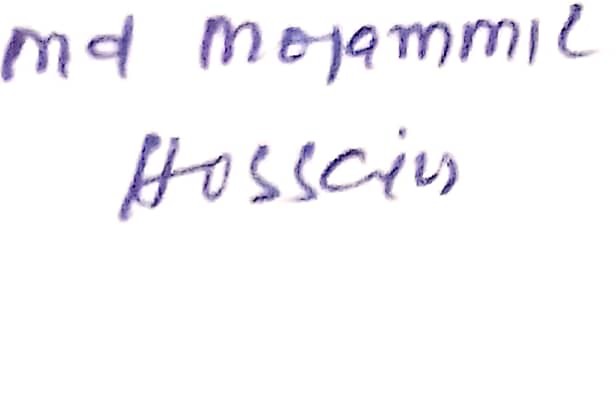 md mojammil
Hossein